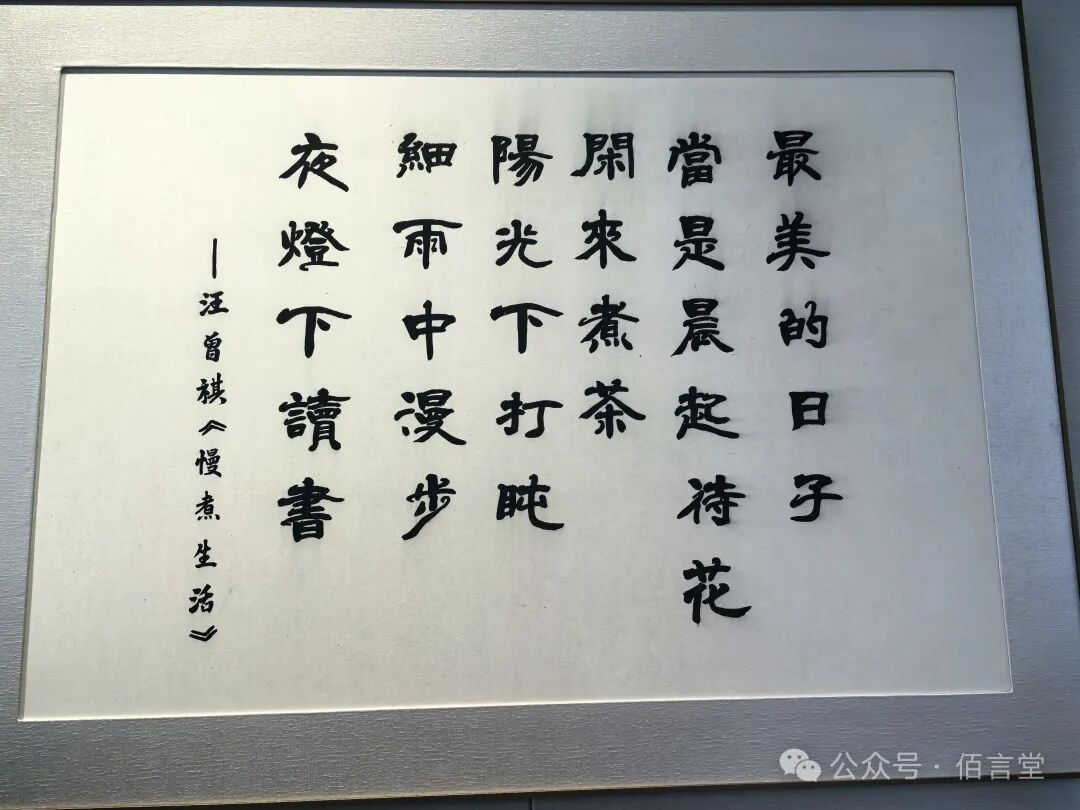 最美的日子
當是晨起待花
閑來煮茶
陽光下打盹
細雨中漫步
夜燈下讀書
—汪曾祺《慢煮生活》
公众号·佰言堂